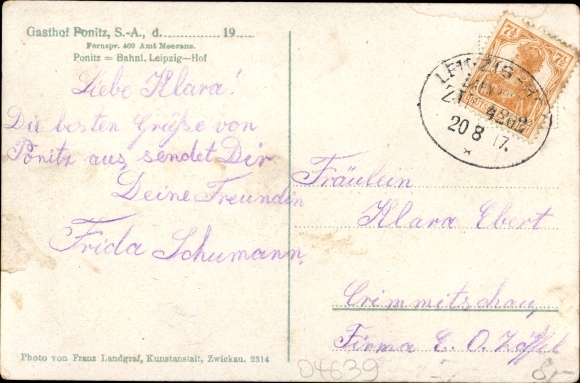 Gasthof Ponitz, S.-A., d. 19
Fernspr. 409 Amt Meerane.
Ponitz = Bahnl. Leipzig—Hof
Liebe Klara!
Die besten Grüße von
Ponitz aus, sendet Dir
Deine Freundin
Frida Schumann.
7½ 7½
LEIPZIG
ZUG
20 8 17.
Fräulein
Klara Ebert
Crimmitschau
Firma E. O. Zöffel
Photo von Franz Landgraf, Kunstanstalt, Zwickau. 2314
04639
8,-